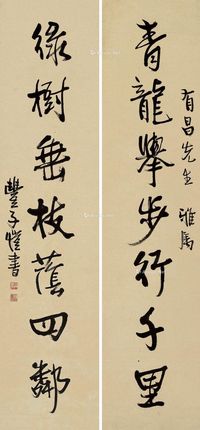 有昌先生 雅属
青龍舉步行千里
綠樹垂枝蔭四鄰
豐子愷書